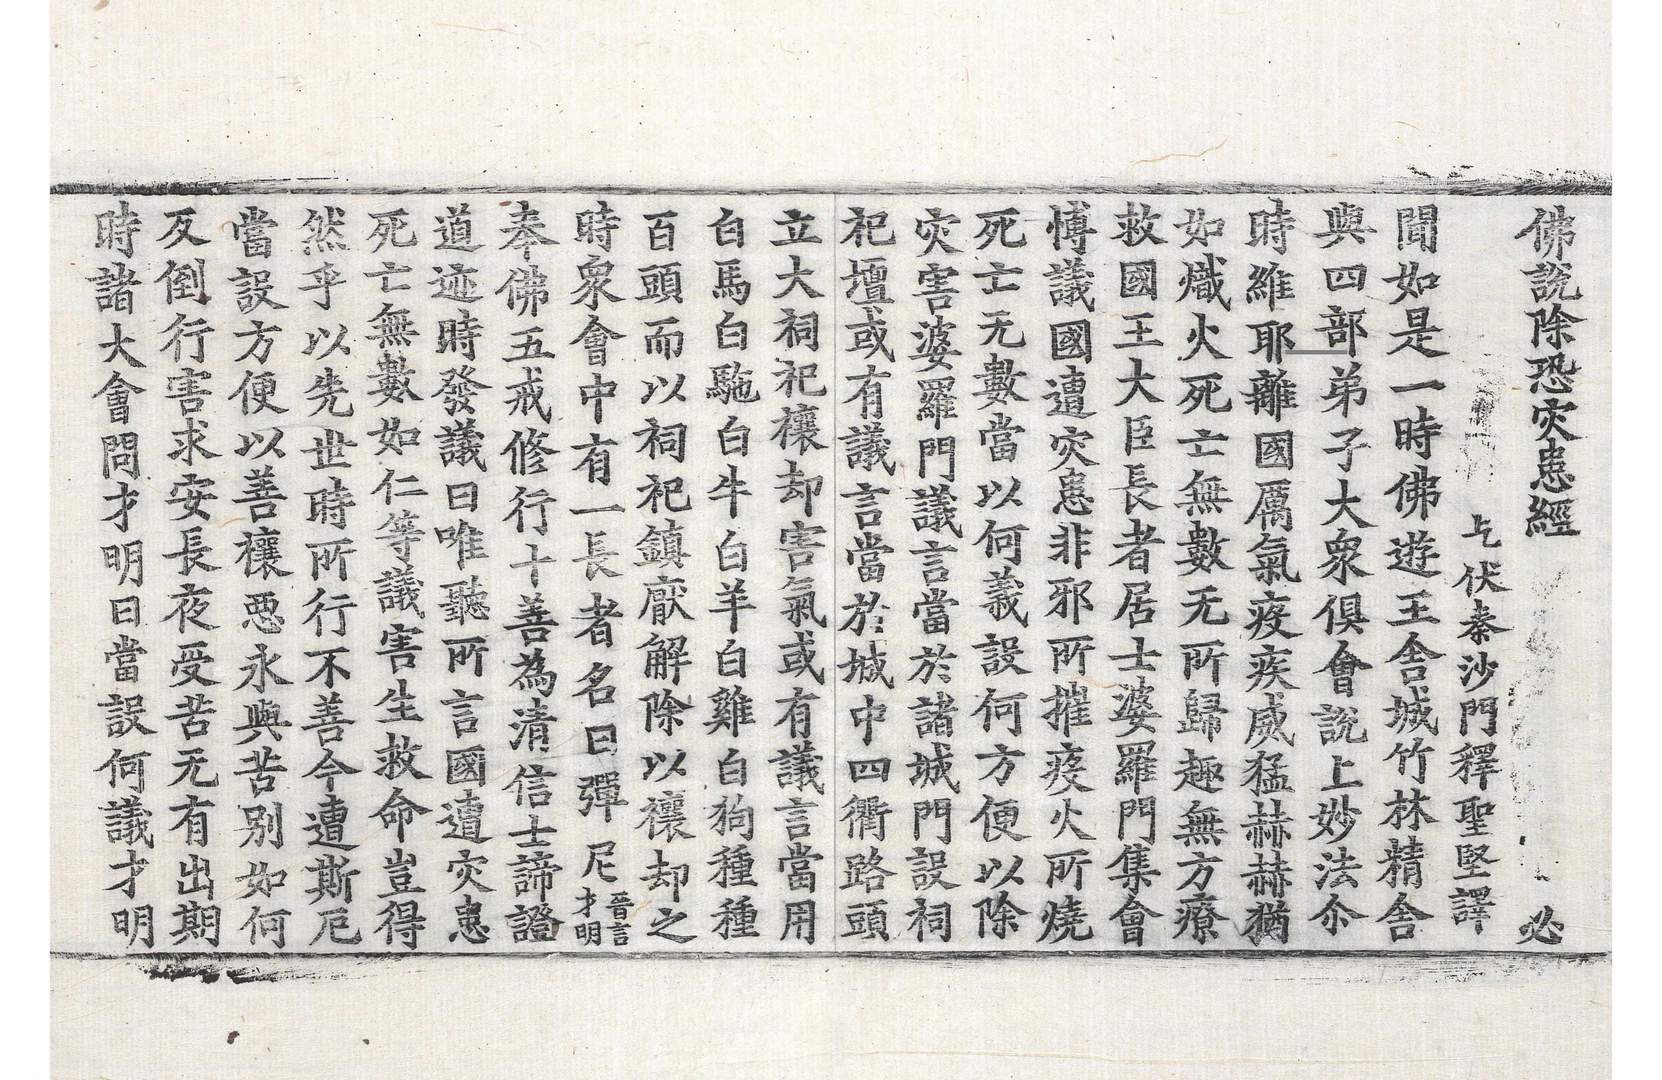 佛說除恐灾患經 必
乞伏秦沙門釋聖堅譯
聞如是一時佛遊王舍城竹林精舍
與四部弟子大衆俱會說上妙法尒
時維耶離國厲氣疫疾威猛赫赫猶
如熾火死亡無數无所歸趣無方療
救國王大臣長者居士婆羅門集會
愽議國遭灾患非邪所摧疫火所燒
死亡无數當以何義設何方便以除
灾害婆羅門議言當於諸城門設祠
祀壇或有議言當於城中四衢路頭
立大祠祀禳却害氣或有議言當用
白馬白駞白牛白羊白雞白狗種種
百頭而以祠祀鎮厭解除以禳却之
時衆會中有一長者名曰彈尼晉言才明
奉佛五戒修行十善為清信士諦證
道迹時發議曰唯聽所言國遭灾患
死亡無數如仁等議害生救命豈得
然乎以先世時所行不善今遭斯厄
當設方便以善禳惡永與苦別如何
反倒行害求安長夜受苦无有出期
時諸大會問才明曰當設何議才明